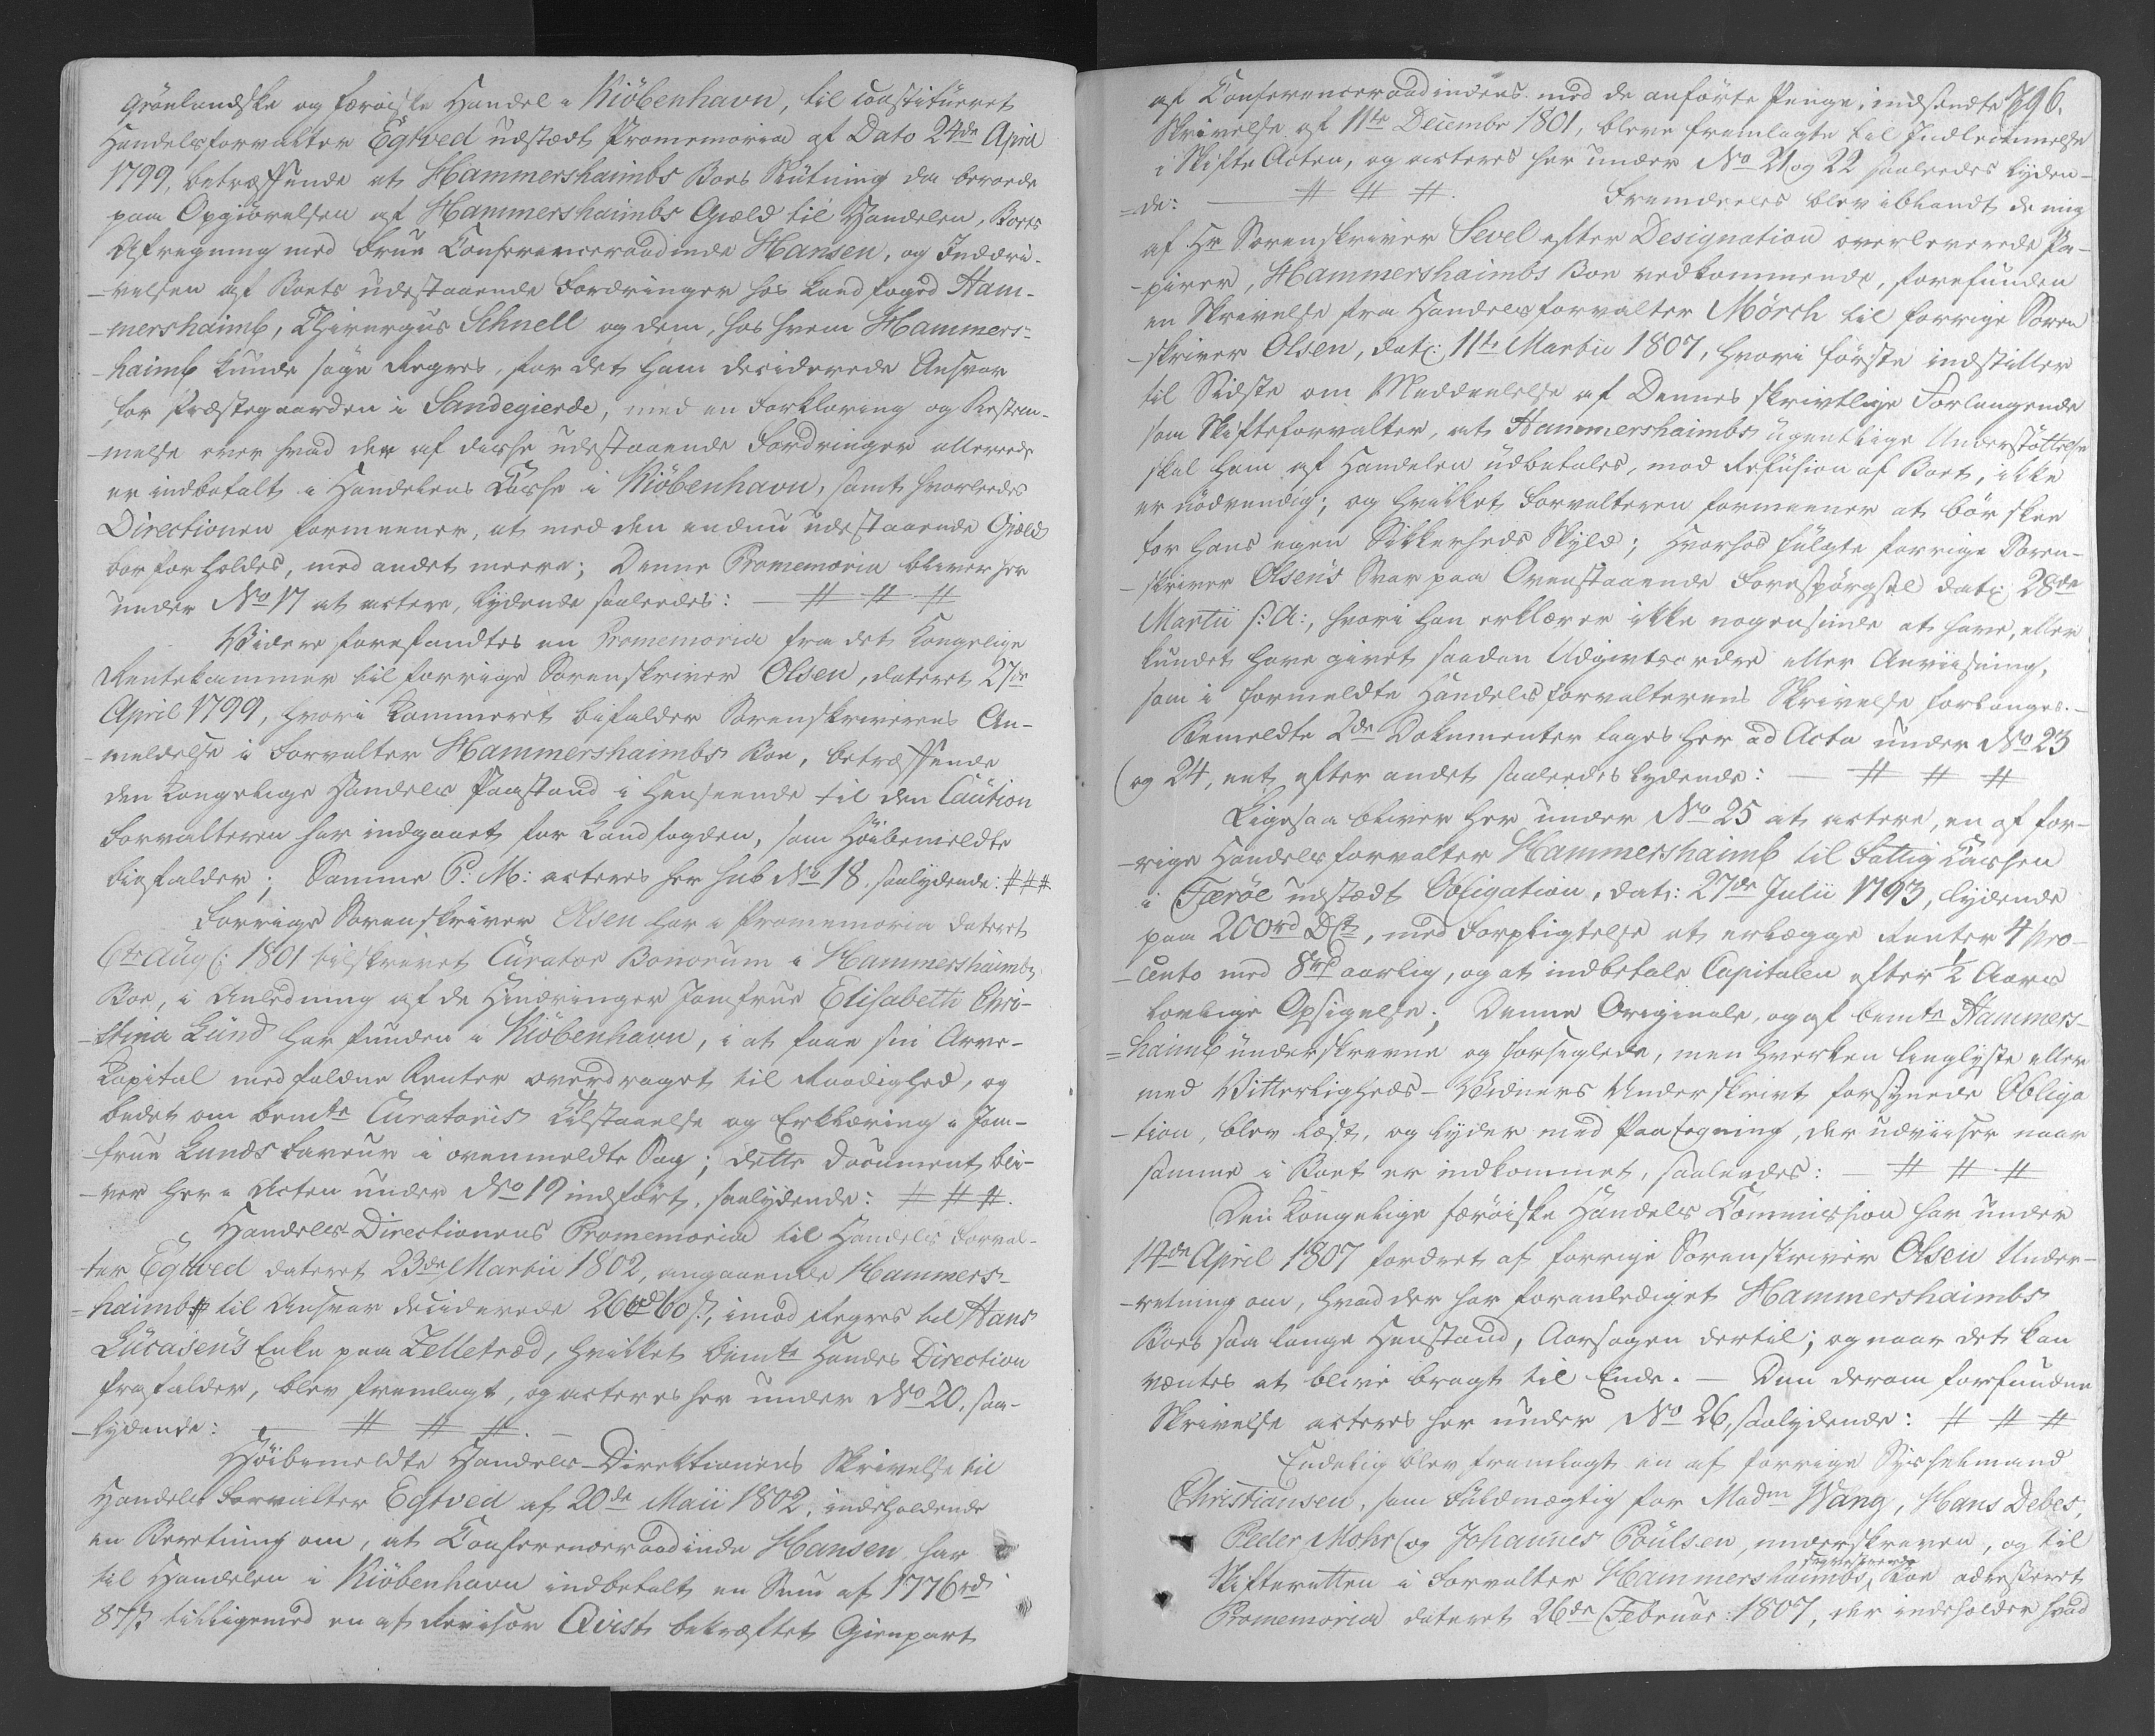 Grönlandske og færöiske Handel i Kiöbenhavn, til constitueret
Handelsforvalter Egtved udstædt Promemoria af Dato 24de April
1799, betræffende at Hammershaimbs Boes Slutning da beroede
paa Opgiörelsen af Hammershaimbs Giæld til Handelen, Boets
Afregning med Frue Conferenceraadinde Hansen, og Inddri-
-velsen af Boets udestaaende Fordringer hos Landfoged Ham-
-mershaimb, Chirurgus Schnell og dem, hos hvem Hammers-
-haimb kunde søge Regres, for det ham deciderede Ansvar
for Præstegaarden i Sandegierde, med en Forklaring og
-melse over hvad der af disse udestaaende Fordringer allerede
er indbetalt i Handelens Casse i Kiöbenhavn, samt hvorledes
Directionen formeener, at med den endnu udestaaende Giæld
bør forholdes, med andet meere; Denne Promemoria bliver her
under No 17 at actere, lydende saaledes: — # # #
Videre forefandtes en Promemoria fra det Kongelige
Rentekammer til forrige Sorenskriver Olsen, dateret 27de
April 1799, hvori Kammeret bifalder Sorenskriverens An-
-meldelse i Forvalter Hammershaimbs Boe, betræffende
den Kongelige Handels Paastand i Henseende til den Caution
Forvalteren har indgaaet for Landfogden, som Höibemeldte
bifalder; Samme P: M: acteres her sub No 18, saalydende: # # #
Forrige Sorenskriver Olsen har i Promemoria dateret
6te Aug: 1801 tilskrevet Curator Bonorum i Hammershaimbs
Boe, i Anledning af de Hindringer Jomfrue Elisabeth Chri-
-stina Lund har funden i Kiöbenhavn, i at faae sin Arve-
Kapital med faldne Renter overdraget til Raadighed, og
bedet om bemte Curatoris Tilstaaelse og Erklæring i Jom-
frue Lunds Faveur i ovenmeldte Sag; dette Document bli-
-ver her i Acten under No 19 indført, saalydende: # # #.
Handels-Directionens Promemoria til Handels Forval-
ter Egtved dateret 23de Martii 1802, angaaende Hammers-
-haimb til Ansvar deciderede 26 rd 60 s:, imod Regres til Hans
Lucasens Enke paa Zelletræd, hvilket bemte Handels Direction
frafalder, blev fremlagt, og acteres her under No 20, saa-
-lydende: — # # #. —
Höibemeldte Handels-Direktionens Skrivelse til
Handels Forvalter Egtved af 20de Maii 1802, indeholdende
en Beretning om, at Conferenceraadinde Hansen har
til Handelen i Kiöbenhavn indbetalt en Sum af 1776 rd
87 s: tilligemed en af Revisor Qvist bekræftet Gienpart
af Conferenceraadindens med de anførte Penge, indsendte 796.
Skrivelse af 11te Decembr 1801, bleve fremlagte til Indlemmelse
i Skifte Acten, og acteres her under No 21 og 22 saaledes lyden-
-de: — # # #. Fremdeeles blev iblandt de mig
af Hr Sorenskriver Sevel efter Designation overleverede Pa-
-pirer, Hammershaimbs Boe vedkommende, forefunden
en Skrivelse fra Handelsforvalter Mörch til forrige Soren
-skriver Olsen, dat: 11te Martii 1807, hvori første indstiller
til Sidste om Meddeelelse af Dennes skrivtlige Forlangende
som Skifteforvalter, at Hammershaimbs ugentlige Understöttelse
skal ham af Handelen udbetales, mod Refusion af Boet, ikke
er nödvendig; og hvilket Forvalteren formeener at bör skee
for hans egen Sikkerheds Skyld; hvorhos fulgte forrige Soren-
-skriver Olsens Svar paa Ovenstaaende Forespörgsel dat: 28de
Martii s: A:, hvori han erklærer ikke nogensinde at have, eller
kundet have givet saadan Udgivtsordre eller Anviisning,
som i formeldte Handelsforvalterens Skrivelse forlanges. —
Bemeldte 2de Dokumenter tages her ad Acta under No 23
og 24, eet efter andet saaledes lydende: — # # #
Ligesaa bliver her under No 25 at actere, en af for-
-rige Handelsforvalter Hammershaimb til Fattig Cassen
i Færöe udstædt Obligation, dat: 27de Julii 1793, lydende
paa 200 rd DCt, med Forpligtelse at erlægge Renter 4 pro-
-cento med 8 rd aarlig, og at indbetale Capitalen efter 1/2 Aars
lovlige Opsigelse; Denne Originale, og af bemte Hammers-
-haimb underskrevne og forseglede, men hverken tinglyste eller
med Vitterligheds-Vidners Underskrivt forsynede Obliga
-tion, blev læst, og lyder med Paategning, der udviiser naar
samme i Boet er indkommet, saaledes: — # # #
Den Kongelige færöiske Handels Commission har under
14de April 1807 fordret af forrige Sorenskriver Olsen Under-
-retning om, hvad der har foranlediget Hammershaimbs
Boes saa lange Henstand, Aarsagen dertil; og naar det kan
ventes at blive bragt til Ende. — Den derom forfundne
Skrivelse acteres her under No 26, saalydende: # # #
Endelig blev fremlagt en af forrige Sysselmand
Christiansen, som Fuldmægtig for Madm Wang, Hans Debes,
Peder Mohr og Johannes Poulsen, underskreven, og til
Skifteretten i Forvalter Hammershaimbs Boe adresseret
Promemoria dateret 26de Februar: 1807, der indeholder hvad